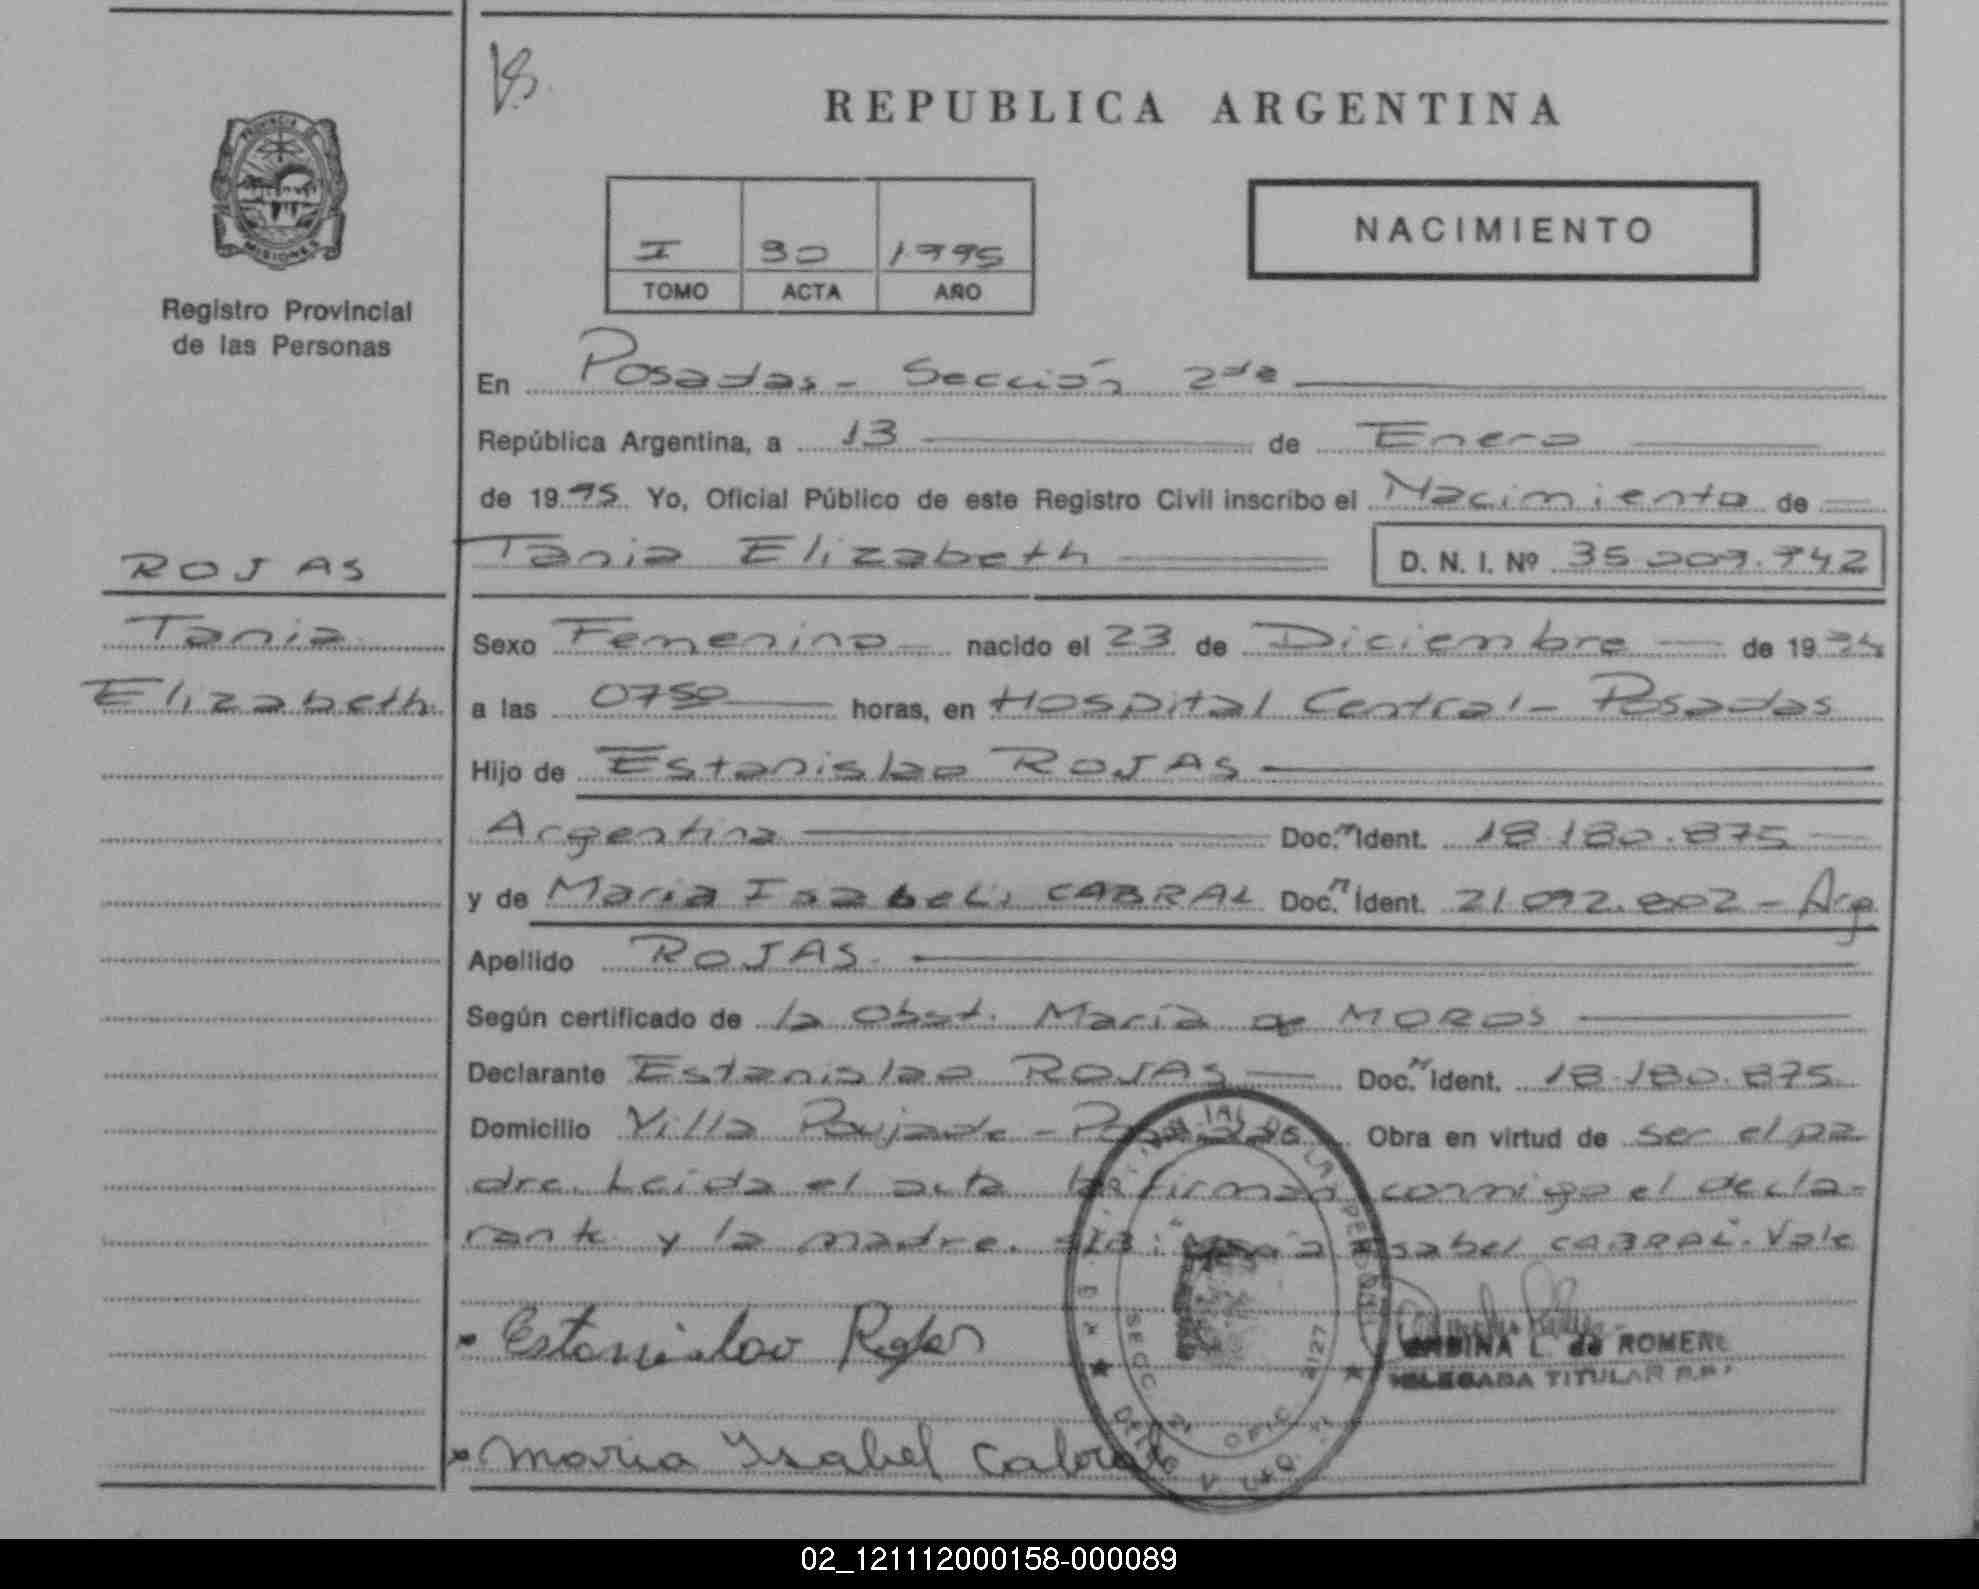 REPUBLICA ARGENTINA
PROVINCIA DE
MISIONES
Registro Provincial
de las Personas
NACIMIENTO
I 90 1995
TOMO ACTA AÑO
En Posadas - Sección 2da
República Argentina, a 13 de Enero
de 1995 Yo, Oficial Público de este Registro Civil inscribo el Nacimiento de
Tania Elizabeth D. N. I. Nº 35.209.742
ROJAS
Tania
Elizabeth
Sexo Femenino nacido el 23 de Diciembre de 1994
a las 0750 horas, en Hospital Central - Posadas
Hijo de Estanislao ROJAS
Argentina Doc. Ident. 18.180.875
y de Maria Isabel CABRAL Doc. Ident. 21.092.802 - Arg
Apellido ROJAS.
Según certificado de la Obst. Maria de MOROS
Declarante Estanislao ROJAS Doc. Ident. 18.180.875
Domicilio Villa Poujade - Posadas Obra en virtud de ser el pa
dre. Leida el acta la firman conmigo el decla-
rante y la madre. S/R: "Maria Isabel CABRAL". Vale
Estanislao Rojas
L. de ROMERO
DELEGADA TITULAR R.P.
Maria Isabel Cabral
SECC. OFIC.
02_121112000158-000089